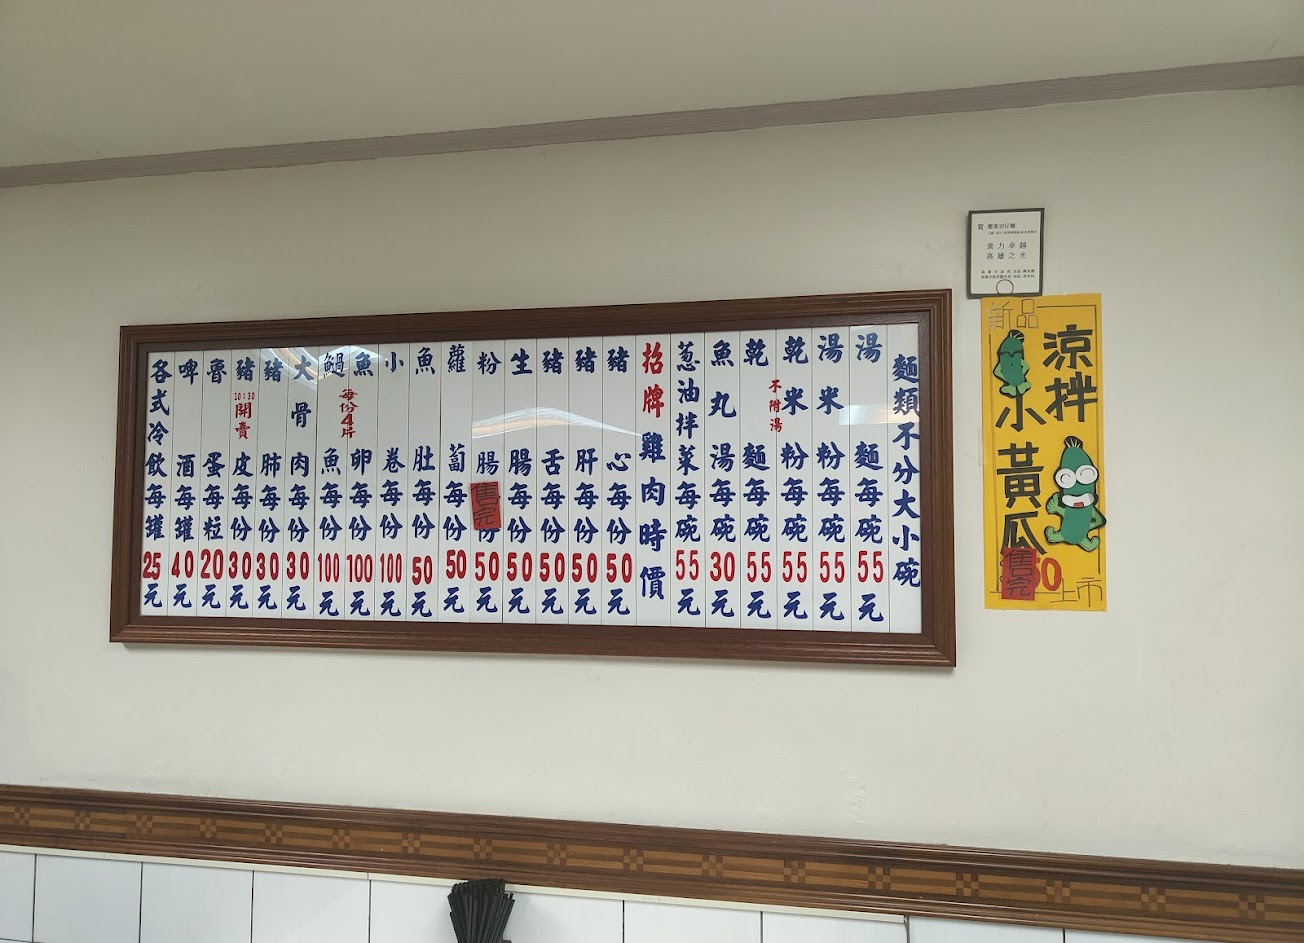 麵類不分大小碗
湯麵每碗55元
湯米粉每碗55元
乾米粉每碗55元
乾麵不附湯每碗55元
魚丸湯每碗30元
蔥油拌菜每碗55元
招牌雞肉時價
豬心每份50元
豬肝每份50元
豬舌每份50元
生腸每份50元
粉腸售完份50元
蘿蔔每份50元
魚肚每份50元
小卷每份100元
魚卵每份4片每份100元
鍋魚每份100元
大骨肉每份30元
豬肺每份30元
豬皮10:30開賣每份30元
魯蛋每粒20元
啤酒每罐40元
各式冷飲每罐25元
賀
食力卓越
高雄之光
新品
涼拌
小黃瓜
售完
50
上市